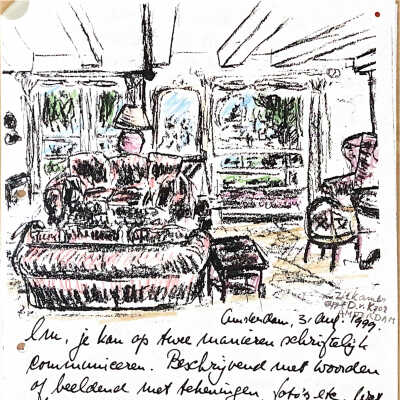 Zitkamer
AMSTERDAM
Amsterdam, 3. Aug. 1999
je kan op twee manieren schriftelijk
communiceren. Beschrijvend met woorden
of beeldend met tekeningen, foto's etc.